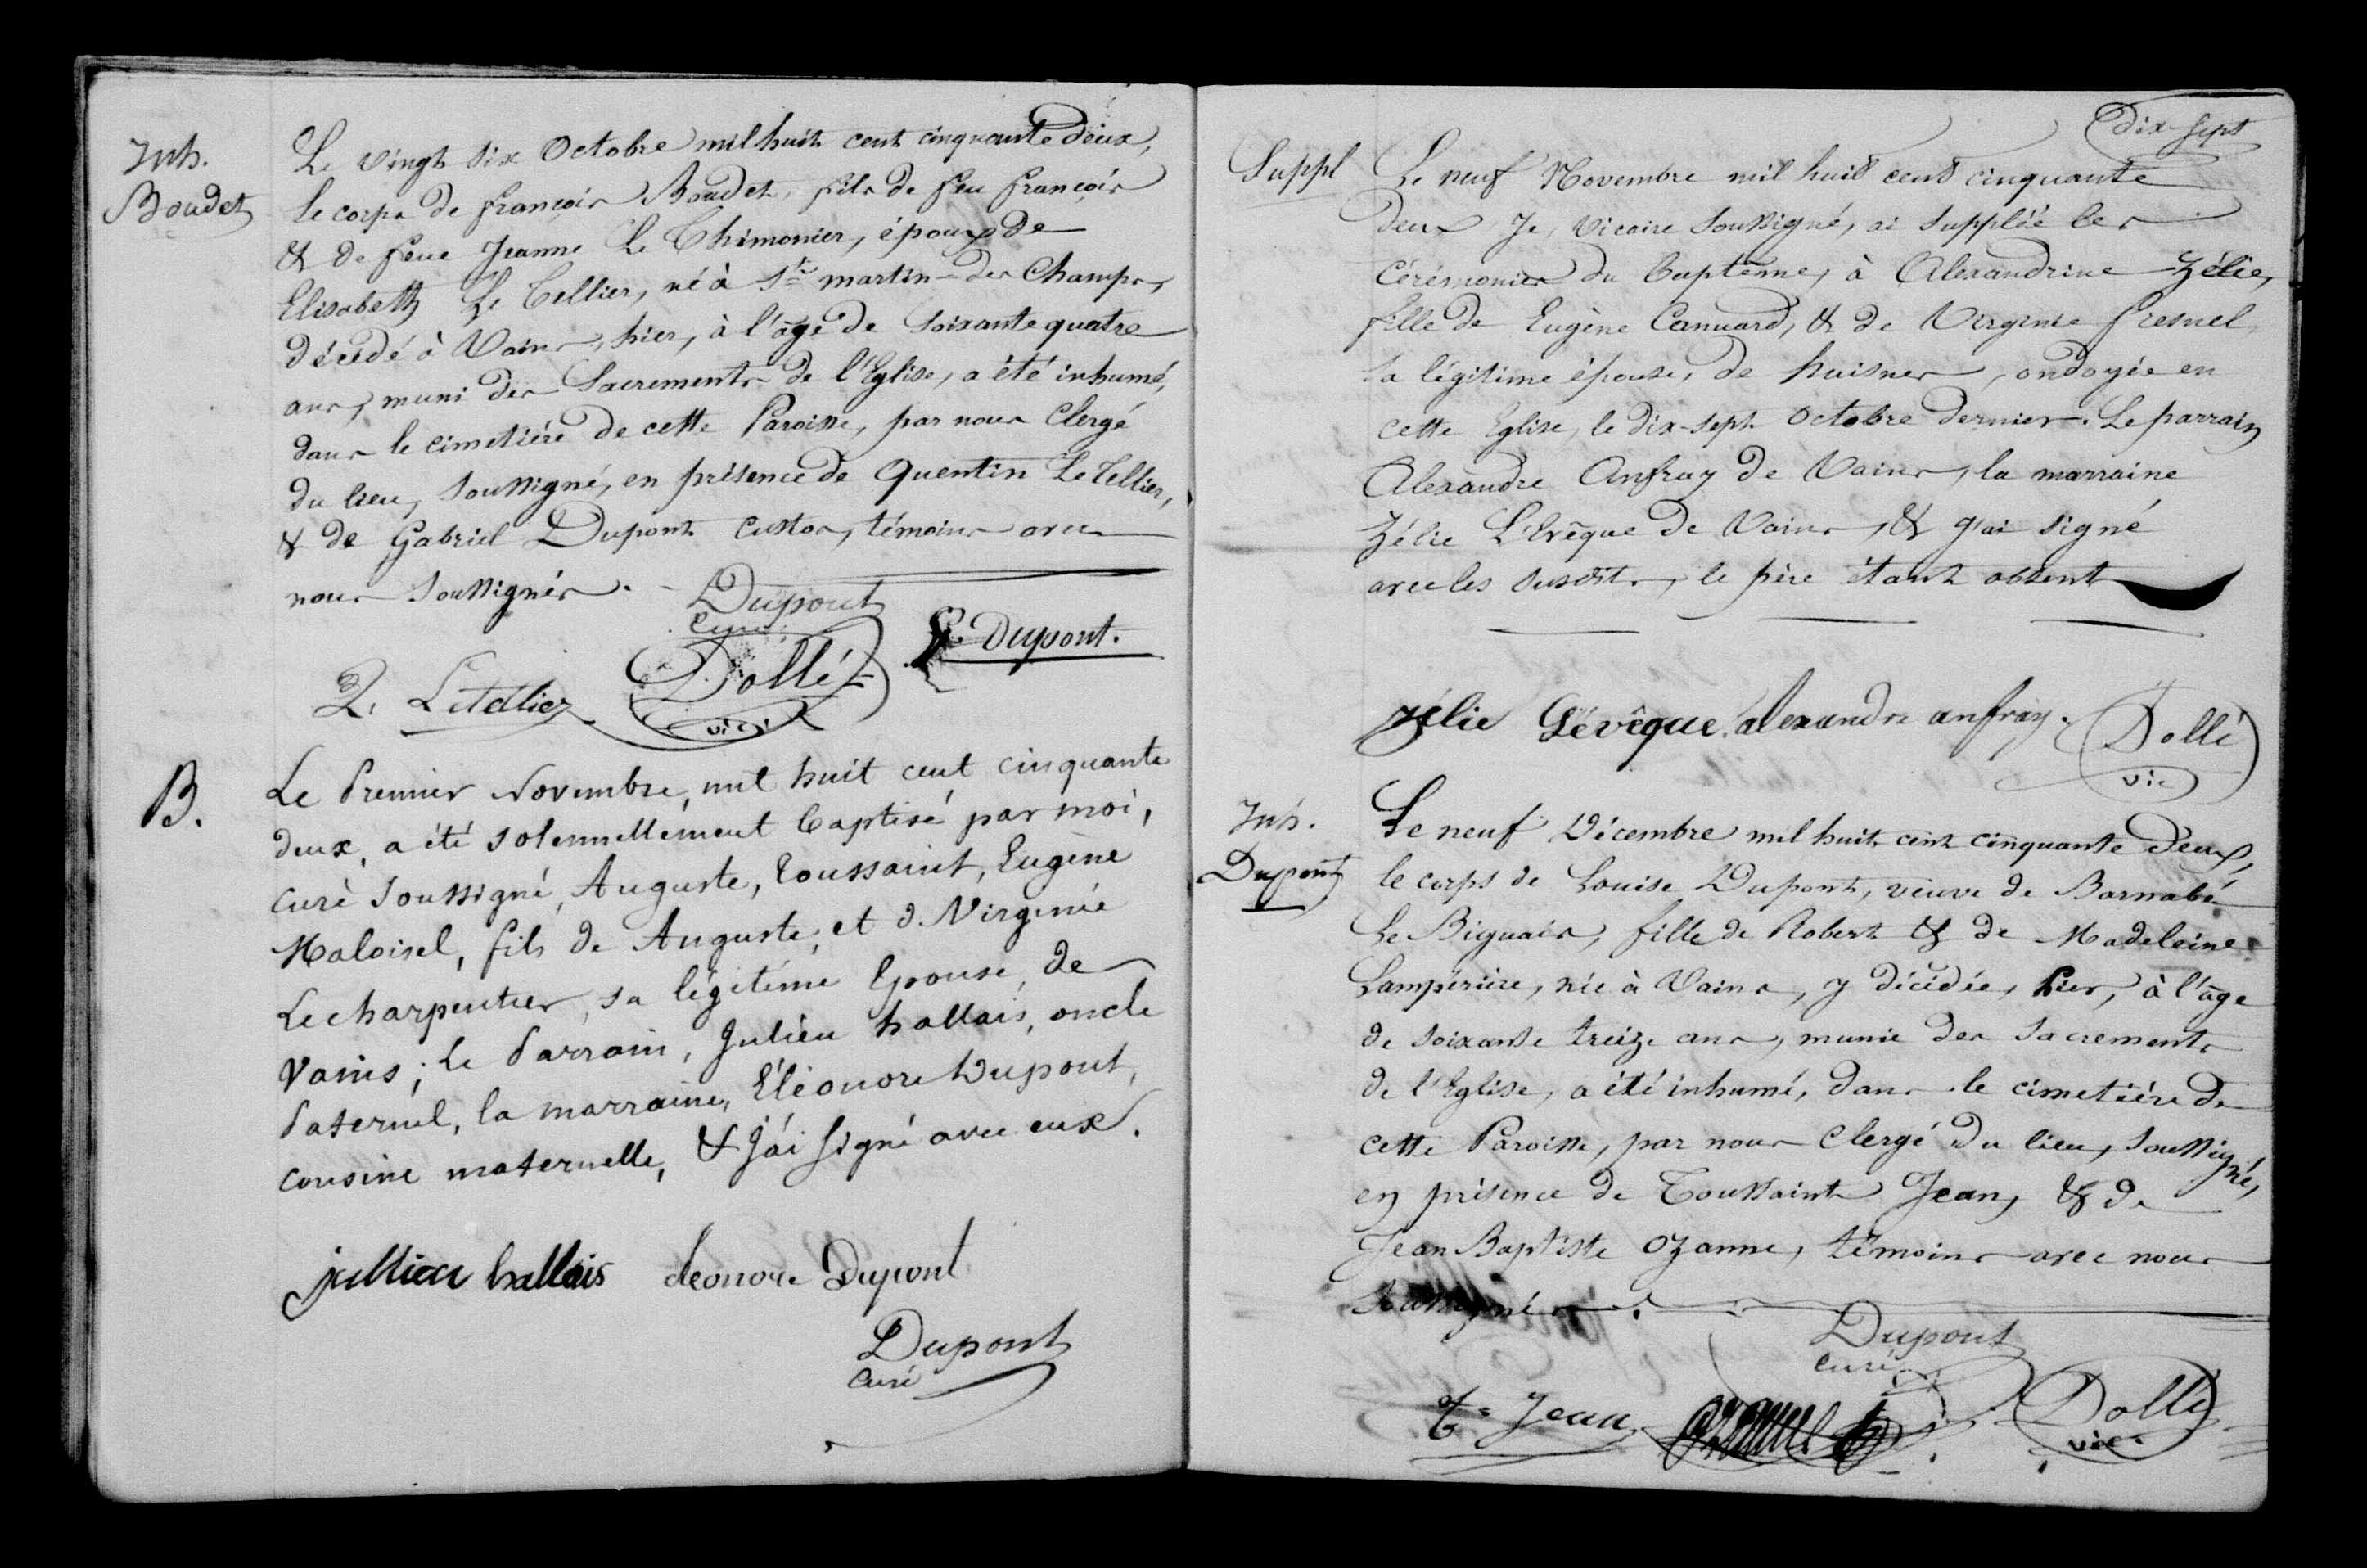 Inh.
Boudet
Le vingt six Octobre mil huit cent cinquante deux,
le corps de françois Boudet, fils de feu françois
& de feue Jeanne Le Thimonier, époux de
Elisabeth Le Tellier, né à St martin-des Champs,
décédé à Vains, hier, à l'âge de soixante quatre
ans, muni des Sacrements de l'Eglise, a été inhumé,
dans le cimetière de cette Paroisse, par nous Clergé
du lieu, soussigné, en présence de Quentin Le Tellier,
& de Gabriel Dupont custos, témoins avec
nous soussignés.
Dupont
curé
G. Dupont.
Q. Letellier
Dollé
vic
B.
Le Premier Novembre, mil huit cent cinquante
deux, a été solennellement baptisé par moi,
curé soussigné, Auguste, Toussaint, Eugène
Maloisel, fils de Auguste, et d. Virginie
Lecharpentier, sa légitime Epouse, de
Vains; le Parrain, Julien hallais, oncle
Paternel, la marraine, Eléonore Dupont,
cousine maternelle, & j'ai signé avec eux.
jullien hallais eleonore Dupont
Dupont
Curé
dix-sept
Suppl
Le neuf Novembre mil huit cent cinquante
deux, Je, Vicaire soussigné, ai suppléé les
Cérémonies du baptême, à Alexandrine Zélie,
fille de Eugène Canuard, & de Virginie fresnel,
sa légitime épouse, de huisnes, ondoyée en
cette Eglise, le dix-sept Octobre dernier. Le parrain
Alexandre Anfray de Vains, la marraine
Zélie L'Evêque de Vains, & j'ai signé
avec les susdits, le père étant absent
zélie Lévêque. alexandre anfray.
Dollé
vic
Inh.
Dupont
Le neuf Décembre mil huit cent cinquante deux,
le corps de Louise Dupont, veuve de Barnabé
Le Biguais, fille de Robert & de Madeleine
Lampérière, née à Vains, y décédée, hier, à l'âge
de soixante treize ans, munie des Sacrements
de l'Eglise, a été inhumé, dans le cimetière de
cette Paroisse, par nous Clergé du lieu, soussigné,
en présence de Toussaint Jean, & de
Jean Baptiste Ozanne, témoins avec nous
soussignés.
Dupont
curé
T. Jean
Dollé
vic.